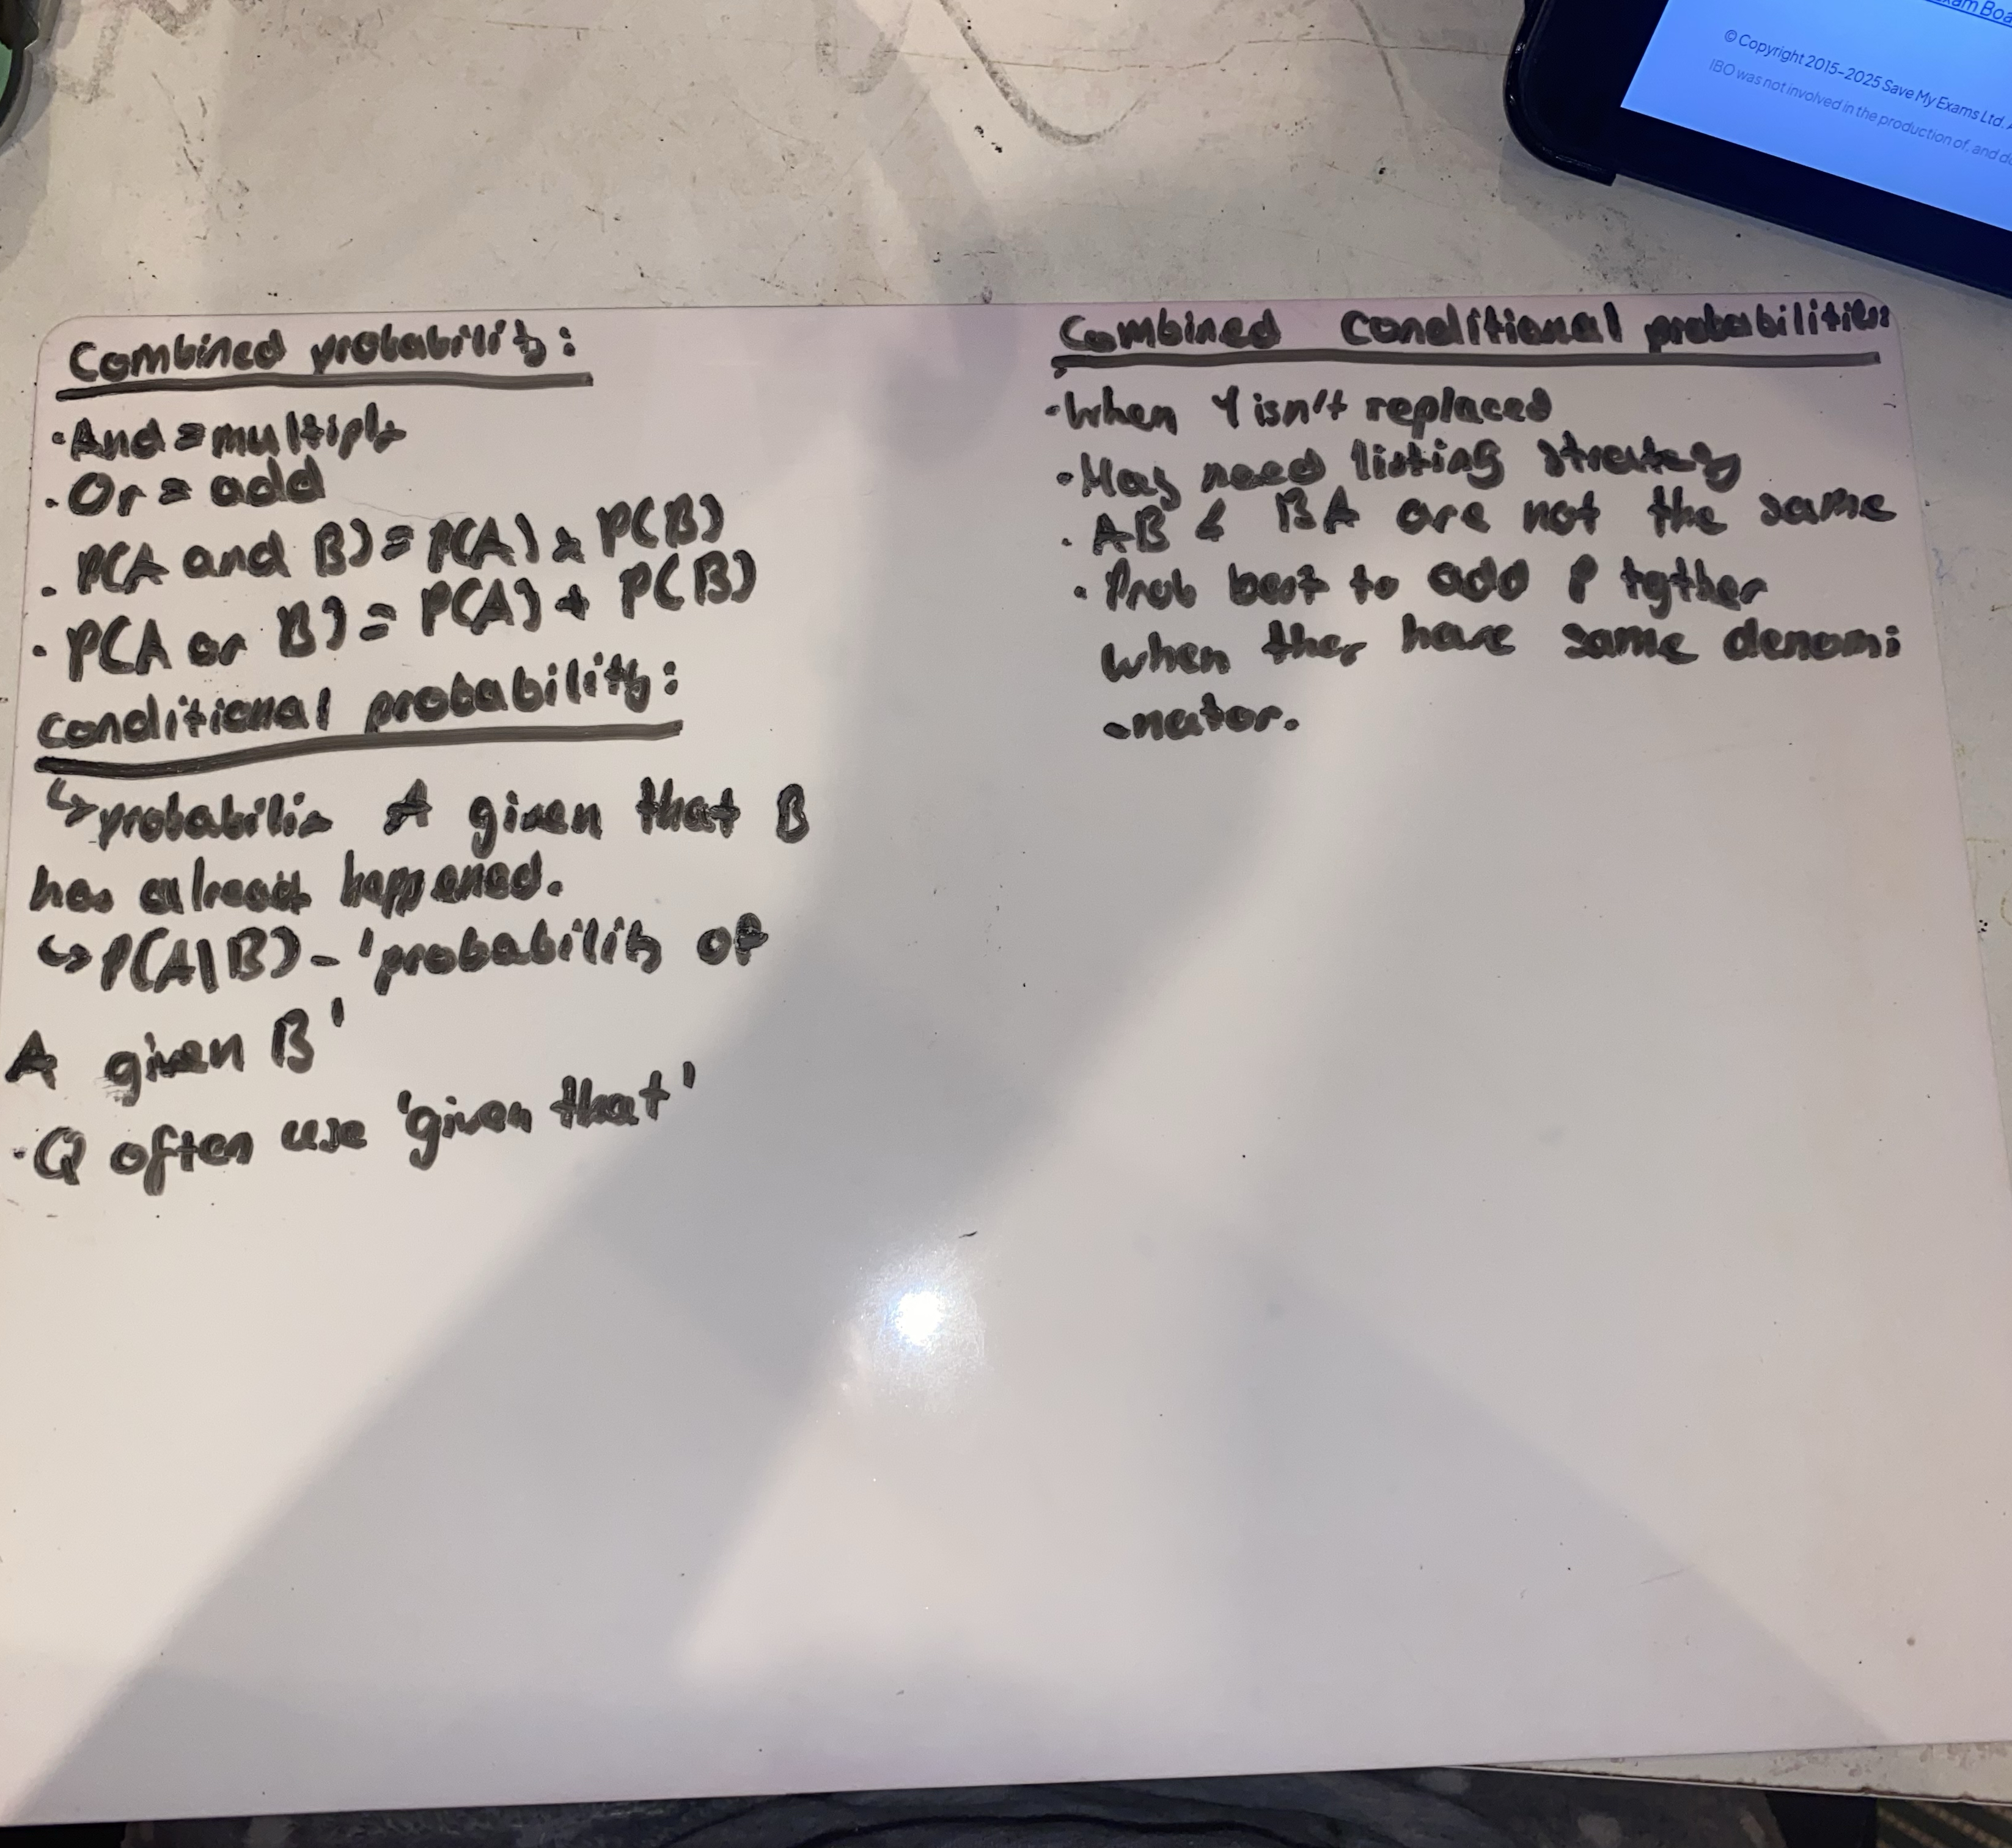 Combined probability:
·And = multiply
·Or = add
·P(A and B) = P(A) x P(B)
·P(A or B) = P(A) + P(B)
conditional probability:
↳ probabilis A given that B
has already happened.
↳ P(A|B) - 'probability of
A given B'
·Q often use 'given that'
Combined conditional probabilities:
·When 1 isn't replaced
·May need listing strategy
·AB & BA are not the same
·Prob best to add P tgther
when they have same denomi
-nator.
am Boa
© Copyright 2015-2025 Save My Exams Ltd.
IBO was not involved in the production of, and do